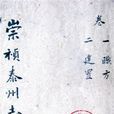 卷一職方
二建置
崇禎泰州志